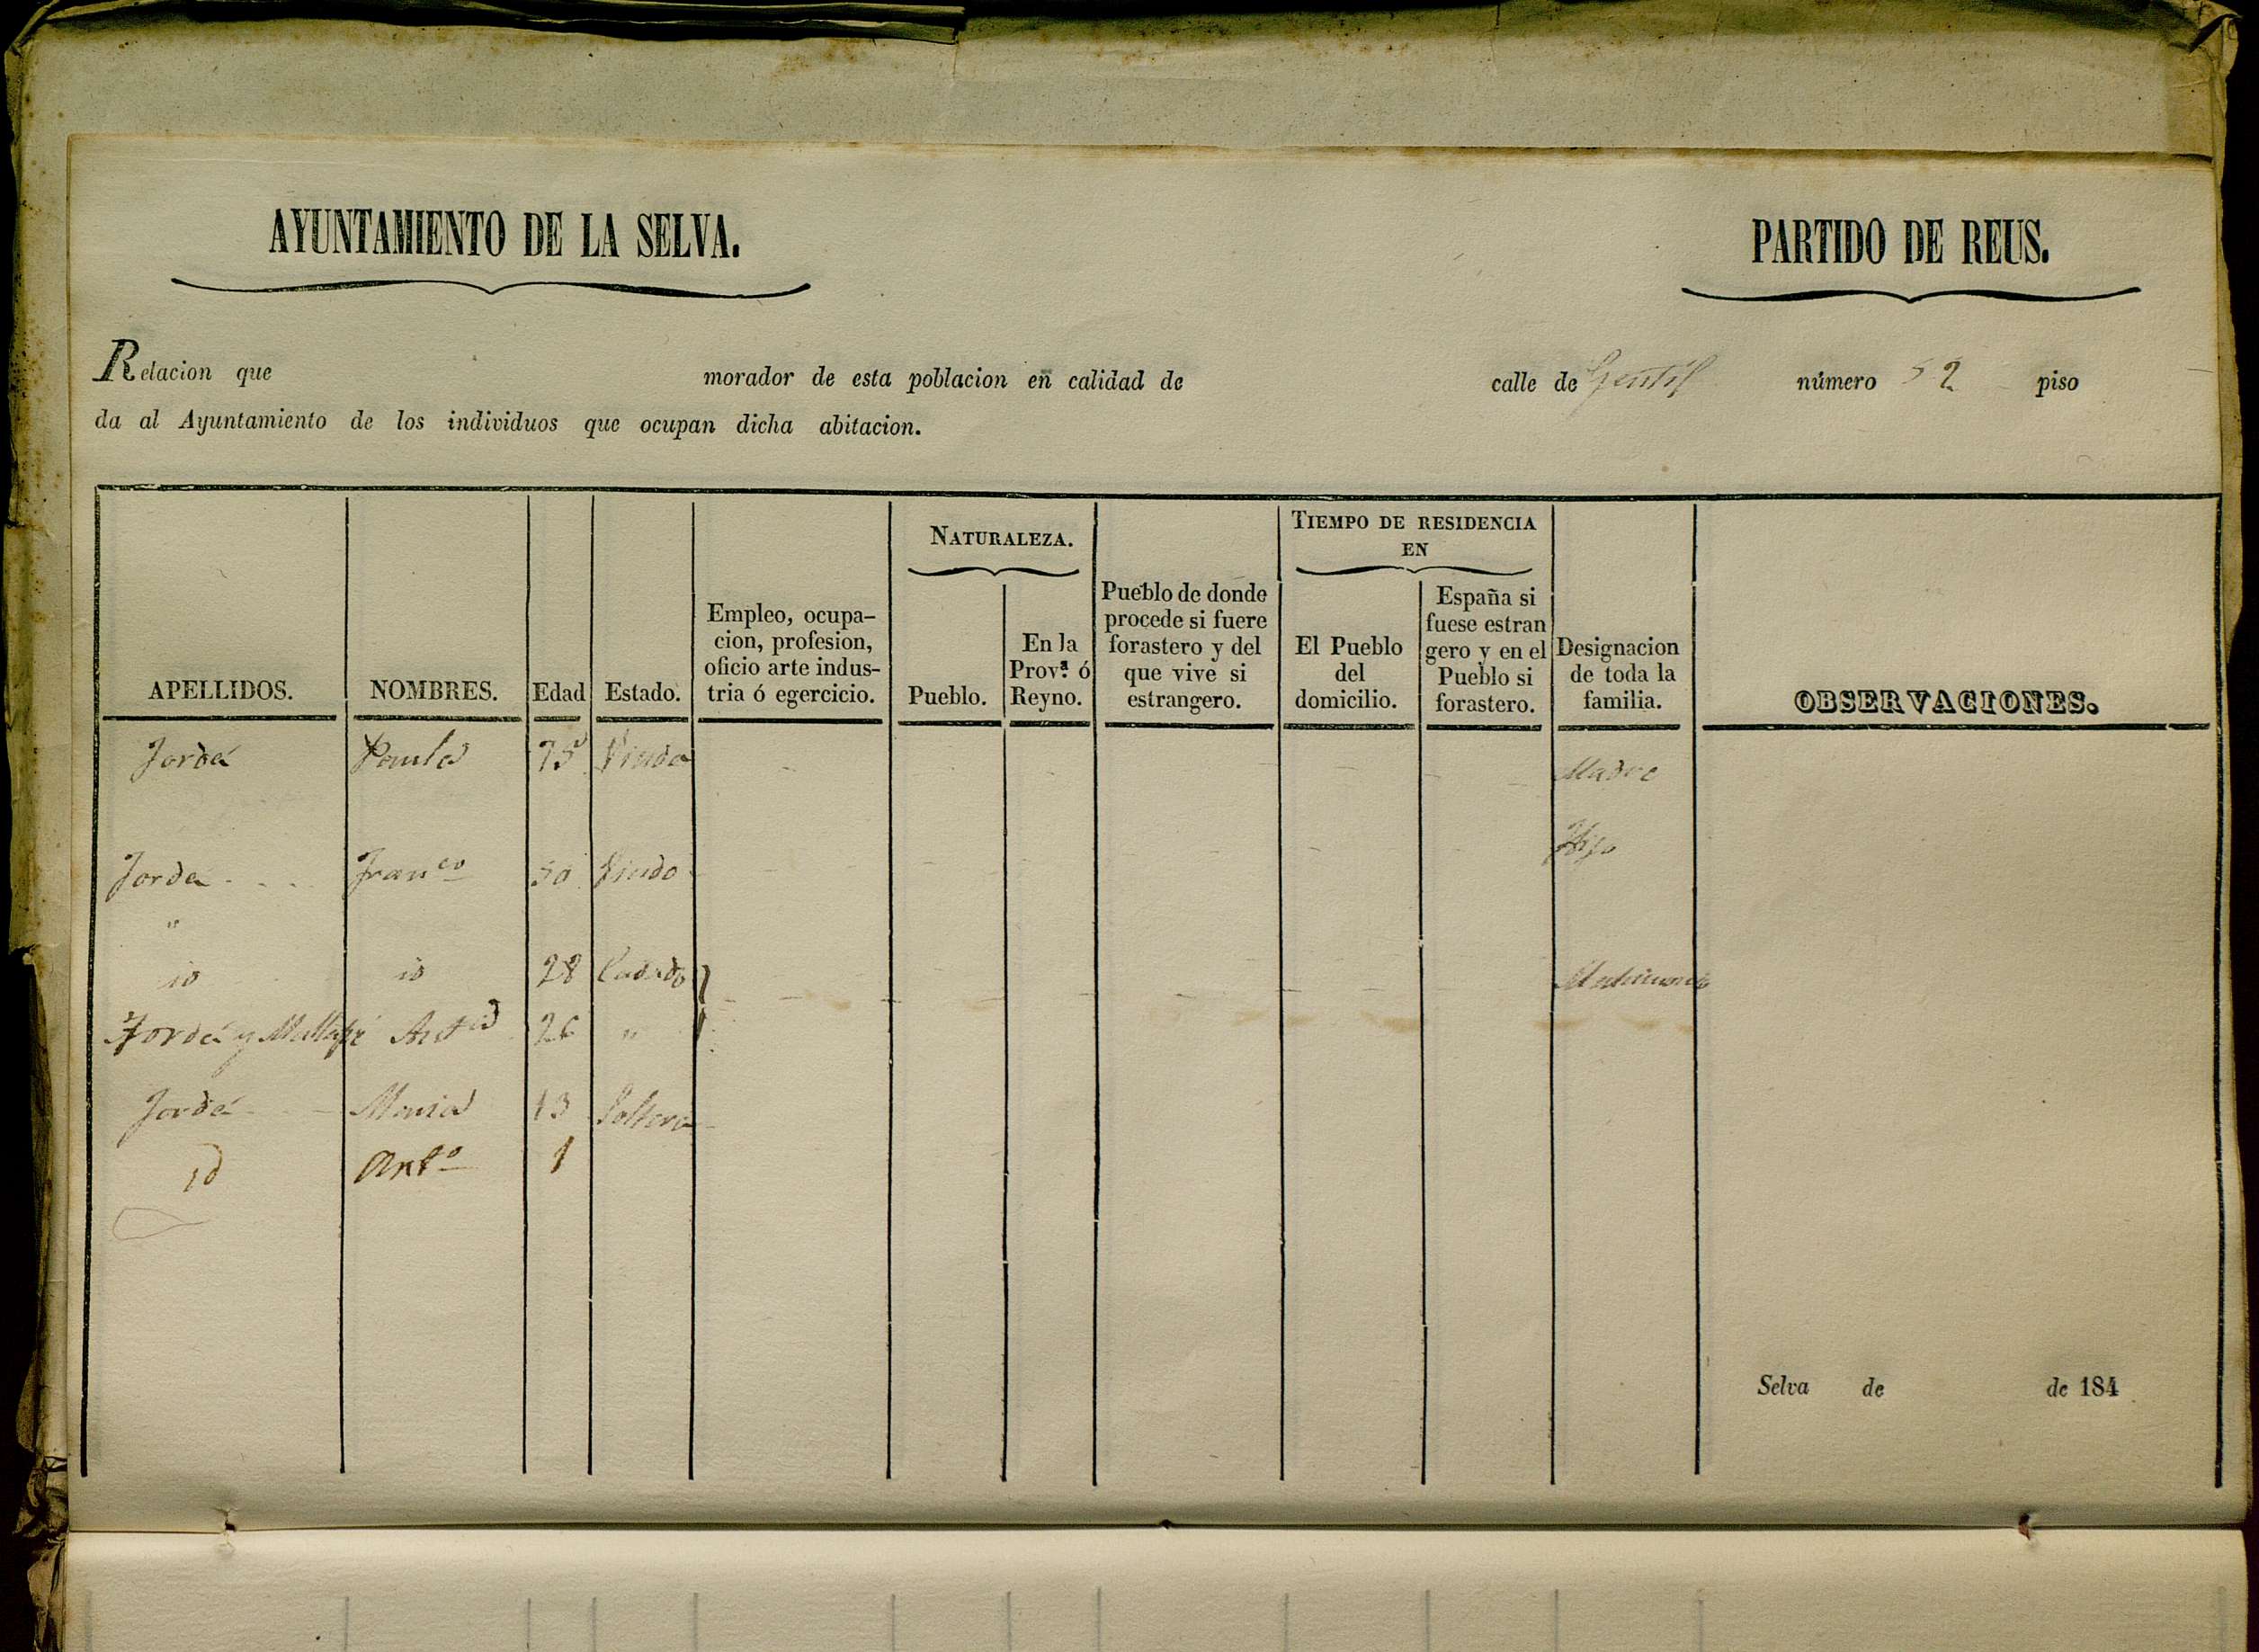 AYUNTAMIENTO DE LA SELVA.
PARTIDO DE REUS.
Relacion que morador de esta poblacion en calidad de calle de Gentil número 52 piso
da al Ayuntamiento de los individuos que ocupan dicha abitacion.
APELLIDOS.
NOMBRES.
Edad
Estado.
Empleo, ocupa-
cion, profesion,
oficio arte indus-
tria ó egercicio.
NATURALEZA.
Pueblo.
En la
Prov.ª ó
Reyno.
Pueblo de donde
procede si fuere
forastero y del
que vive si
estrangero.
TIEMPO DE RESIDENCIA
EN
El Pueblo
del
domicilio.
España si
fuese estran
gero y en el
Pueblo si
forastero.
Designacion
de toda la
familia.
OBSERVACIONES.
Jordá Paula 75 Viuda Madre
Jorda Fran.co 50 Viudo Hijo
"
id id 28 Casado Matrimonio
Jordá y Ant.a 26 "
Jordá Maria 13 Soltera
id Ant.o 1
Selva de de 184